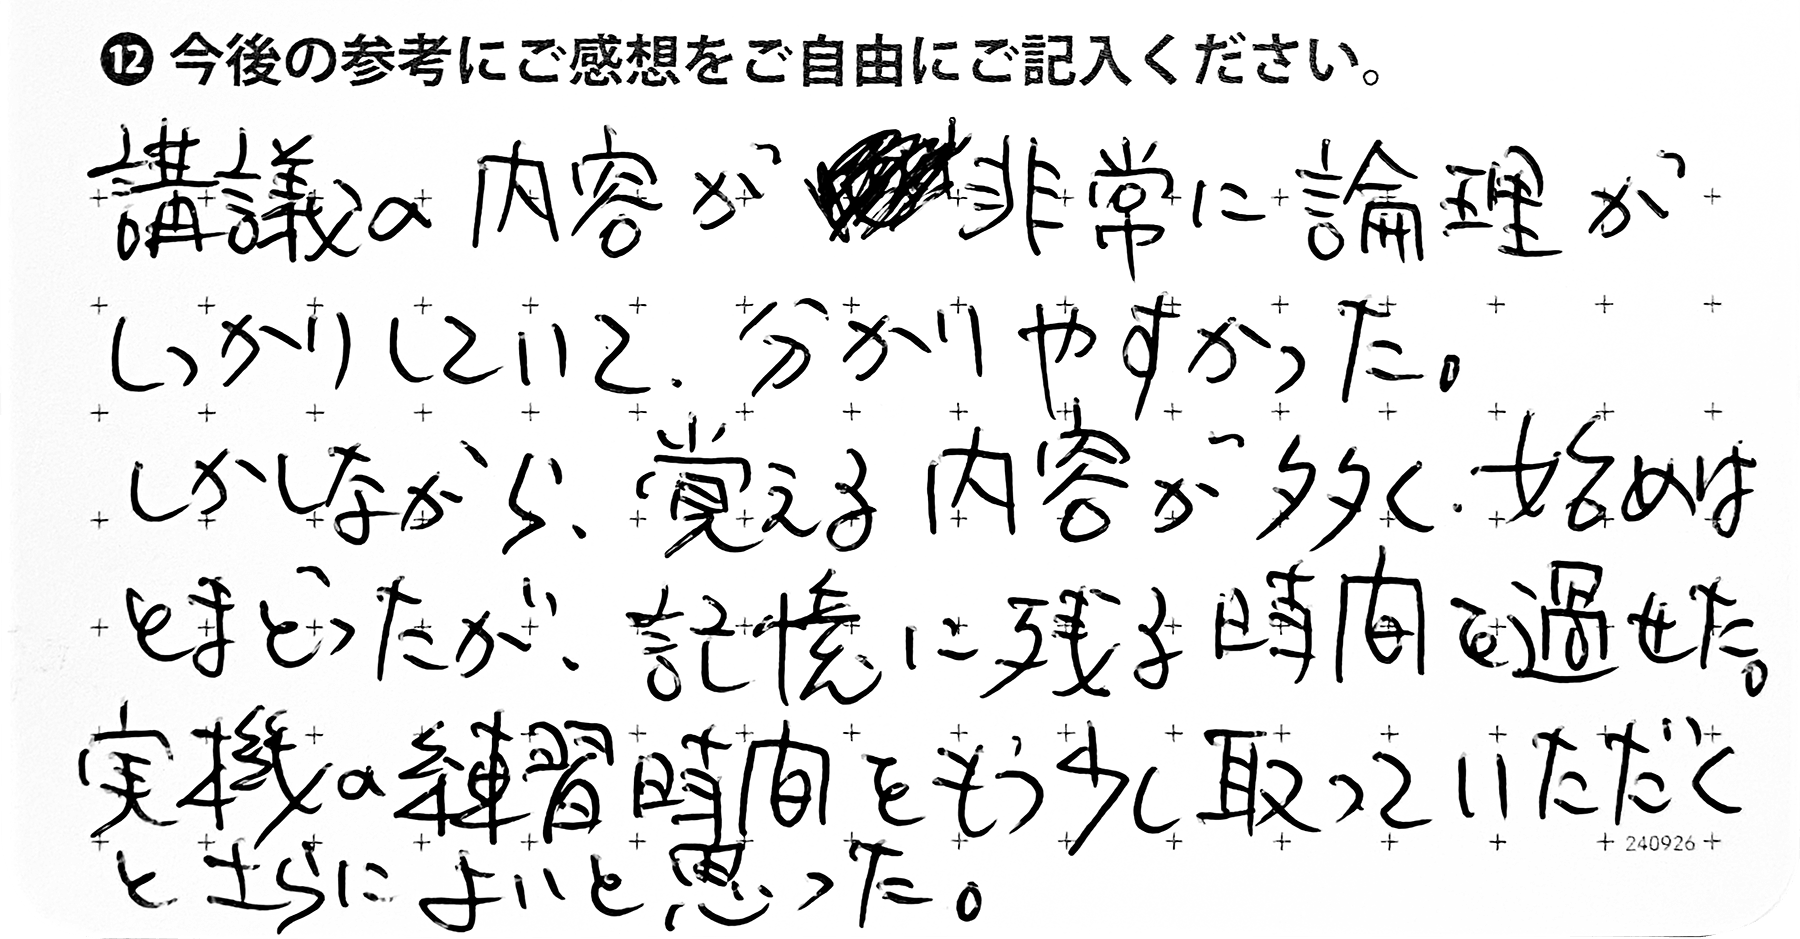 ⓬ 今後の参考にご感想をご自由にご記入ください。
講議の内容が非常に論理が
しっかりしていて、分かりやすかった。
しかしながら、覚える内容が多く、始めは
とまどったが、記憶に残る時間を過せた。
実機の練習時間をもう少し取っていただく
とさらによいと思った。
240926